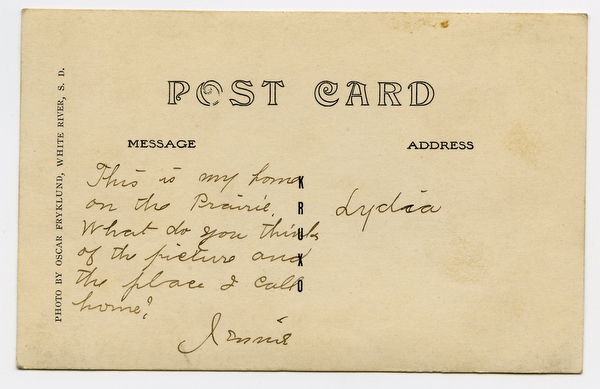 POST CARD
MESSAGE
ADDRESS
This is my home
on the Prairie.
What do you think
of the picture and
the place I call
home?
KRUXO
Lydia
PHOTO BY OSCAR FRYKLUND, WHITE RIVER, S. D.